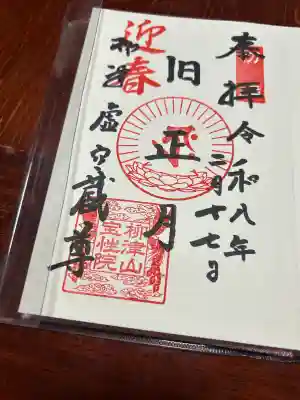 奉拝
令和八年
二月十七日
旧正月
迎春
虚空蔵尊
柳津山
宝性院